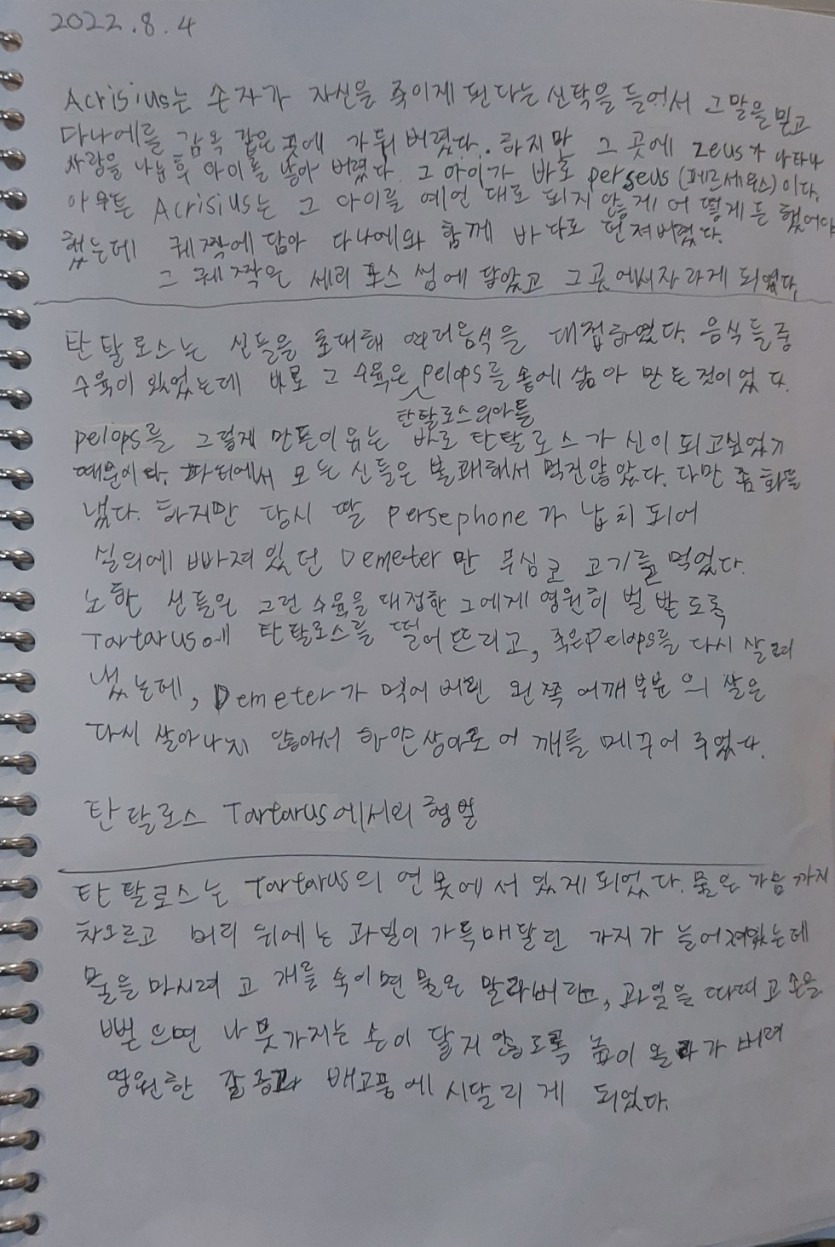 2022.8.4
Acrisius는 손자가 자신을 죽이게 된다는 신탁을 들어서 그말을 믿고
다나에를 감옥 같은 곳에 가둬 버렸다. 하지만 그 곳에 zeus가 나타나
사랑을 나눈 후 아이를 낳아 버렸다. 그 아이가 바로 perseus (페르세우스)이다.
아무튼 Acrisius는 그 아이를 예언 대로 되지 않게 어떻게든 했어야
했는데 궤짝에 담아 다나에와 함께 바다로 던져버렸다.
그 궤짝은 세리포스 섬에 닿았고 그곳에서 자라게 되었다.
탄탈로스는 신들을 초대해 여러음식을 대접하였다. 음식들중
수육이 있었는데 바로 그 수육은 pelops를 솥에 삶아 만든것이었다.
탄탈로스의아들
pelops를 그렇게 만든이유는 바로 탄탈로스가 신이 되고싶었기
때문이다. 파티에서 모든 신들은 불쾌해서 먹진않았다. 다만 좀 화를
냈다. 하지만 당시 딸 persephone가 납치되어
실의에 빠져 있던 Demeter만 무심코 고기를 먹었다.
노한 신들은 그런 수육을 대접한 그에게 영원히 벌 받도록
Tartarus에 탄탈로스를 떨어뜨리고, 죽은 Pelops를 다시 살려
냈는데, Demeter가 먹어 버린 왼쪽 어깨부분의 살은
다시 살아나지 않아서 하얀상아로 어깨를 메꾸어 주었다.
탄탈로스 Tartarus에서의 형벌
탄탈로스는 Tartarus의 연못에 서 있게 되었다. 물은 가슴까지
차오르고 머리 위에는 과일이 가득매달린 가지가 늘어져있는데
물을 마시려 고개를 숙이면 물은 말라버리고, 과일을 따려고 손을
뻗으면 나뭇가지는 손이 닿지 않도록 높이 올라가 버려
영원한 갈증과 배고픔에 시달리게 되었다.